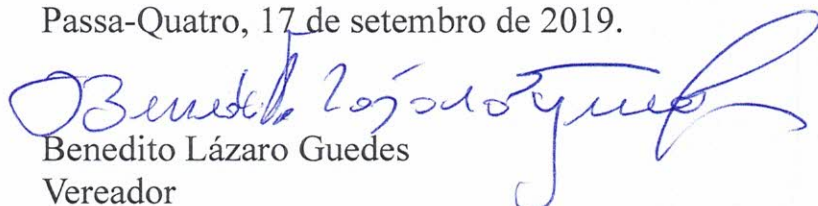 Passa-Quatro, 17 de setembro de 2019.
Benedito Lázaro Guedes
Benedito Lázaro Guedes
Vereador